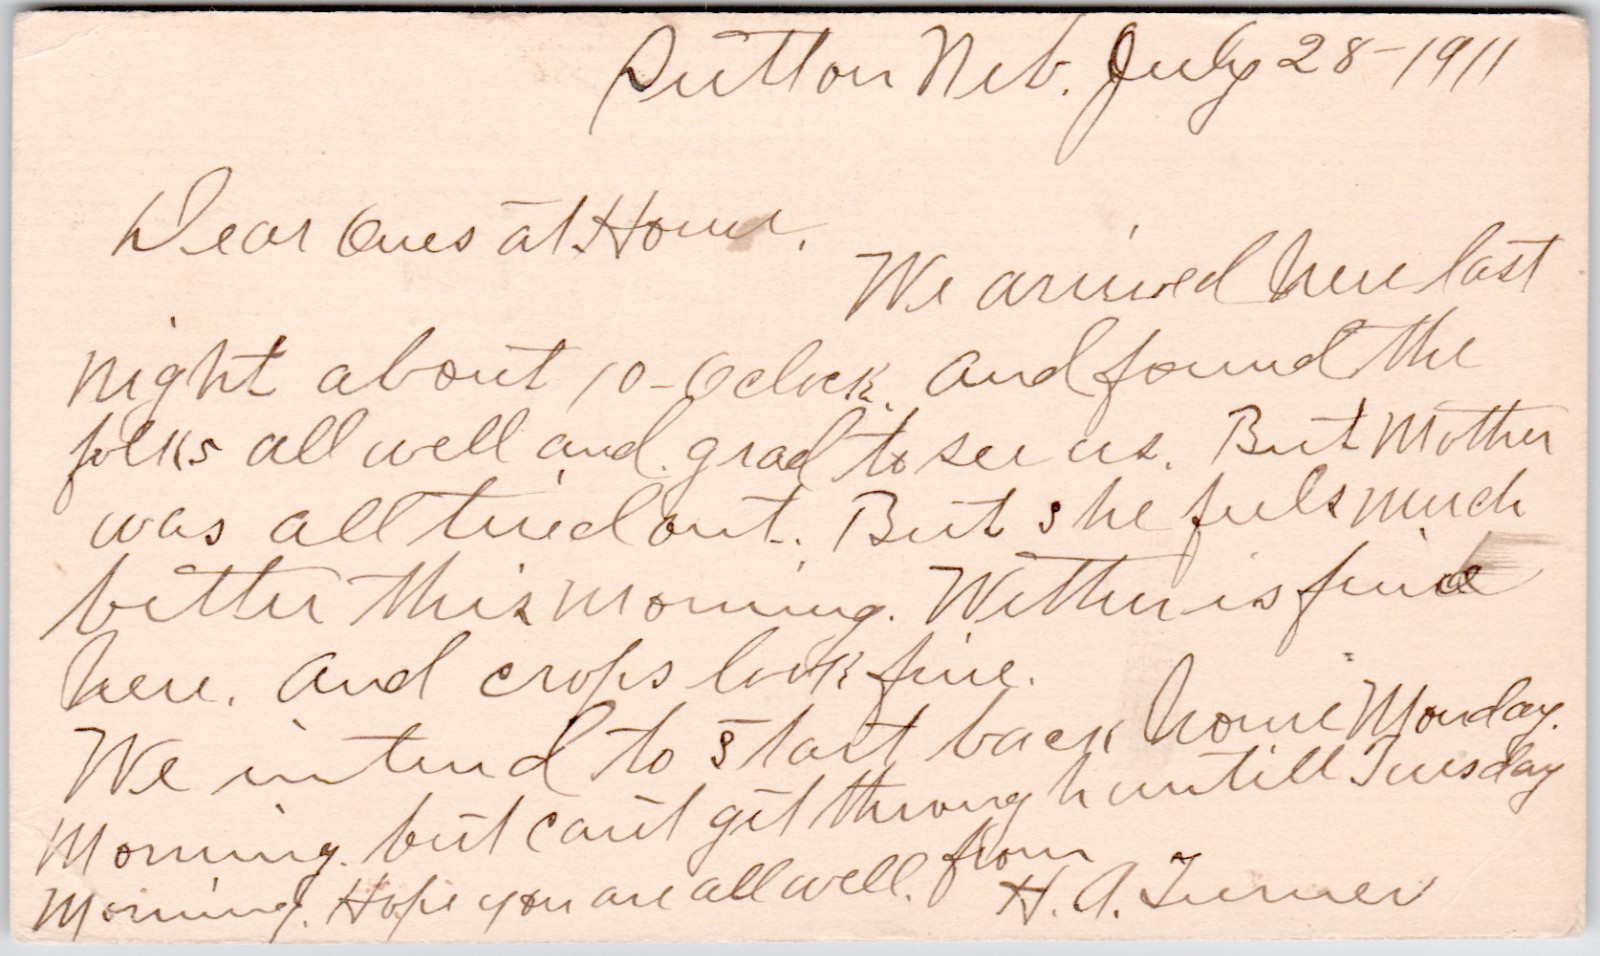 Sutton Neb. July 28-1911
Dear Ones at Home.
We arrived here last
night about 10-Oclock. and found the
folks all well and. grad to see us. But Mother
was all tired out. But she feels much
better this morning. Wether is fine
here. and crops look fine.
We intend to start back home Monday.
Morning. but cant get through untill Tuesday
Morning. Hope you are all well. from
H. A. Turner